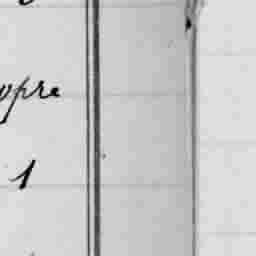 opre
1